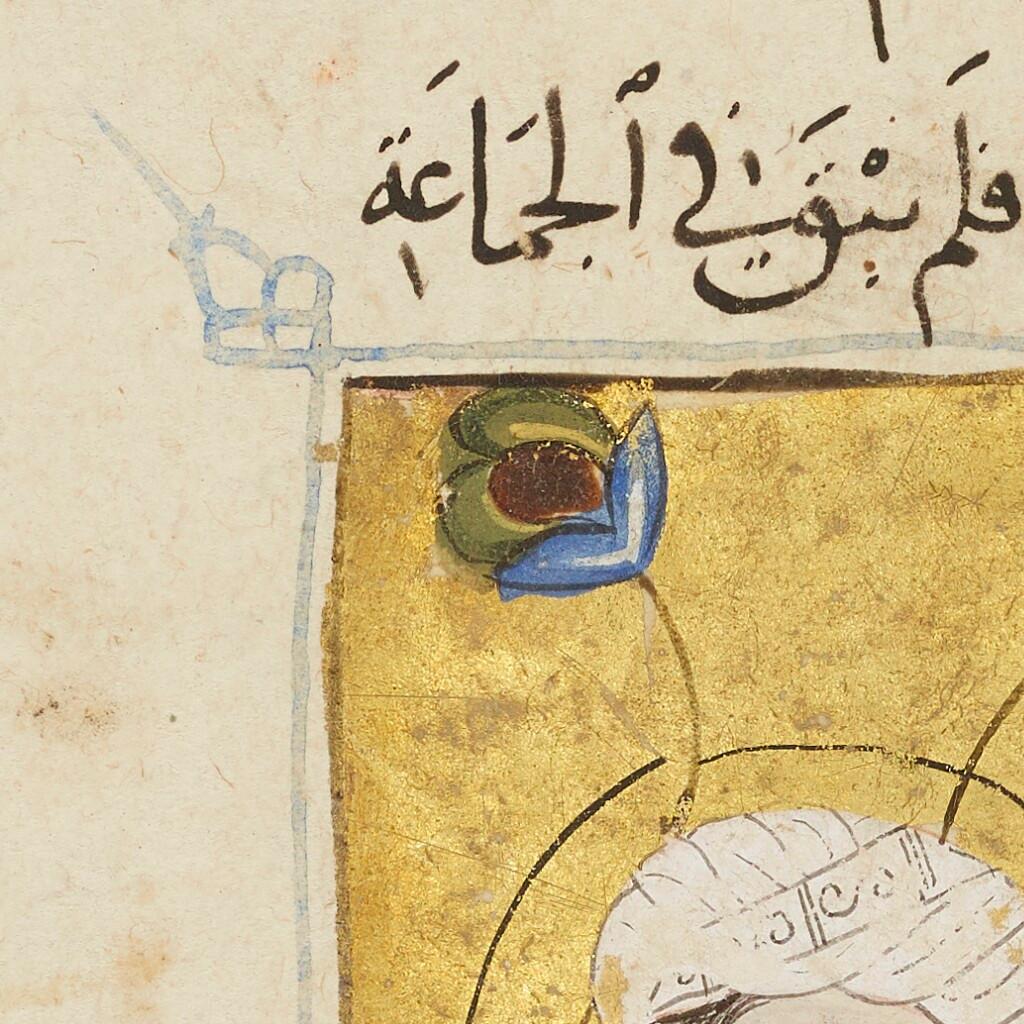 فَلَم يَبْقَ فِي ٱلْجَمَاعَةِ